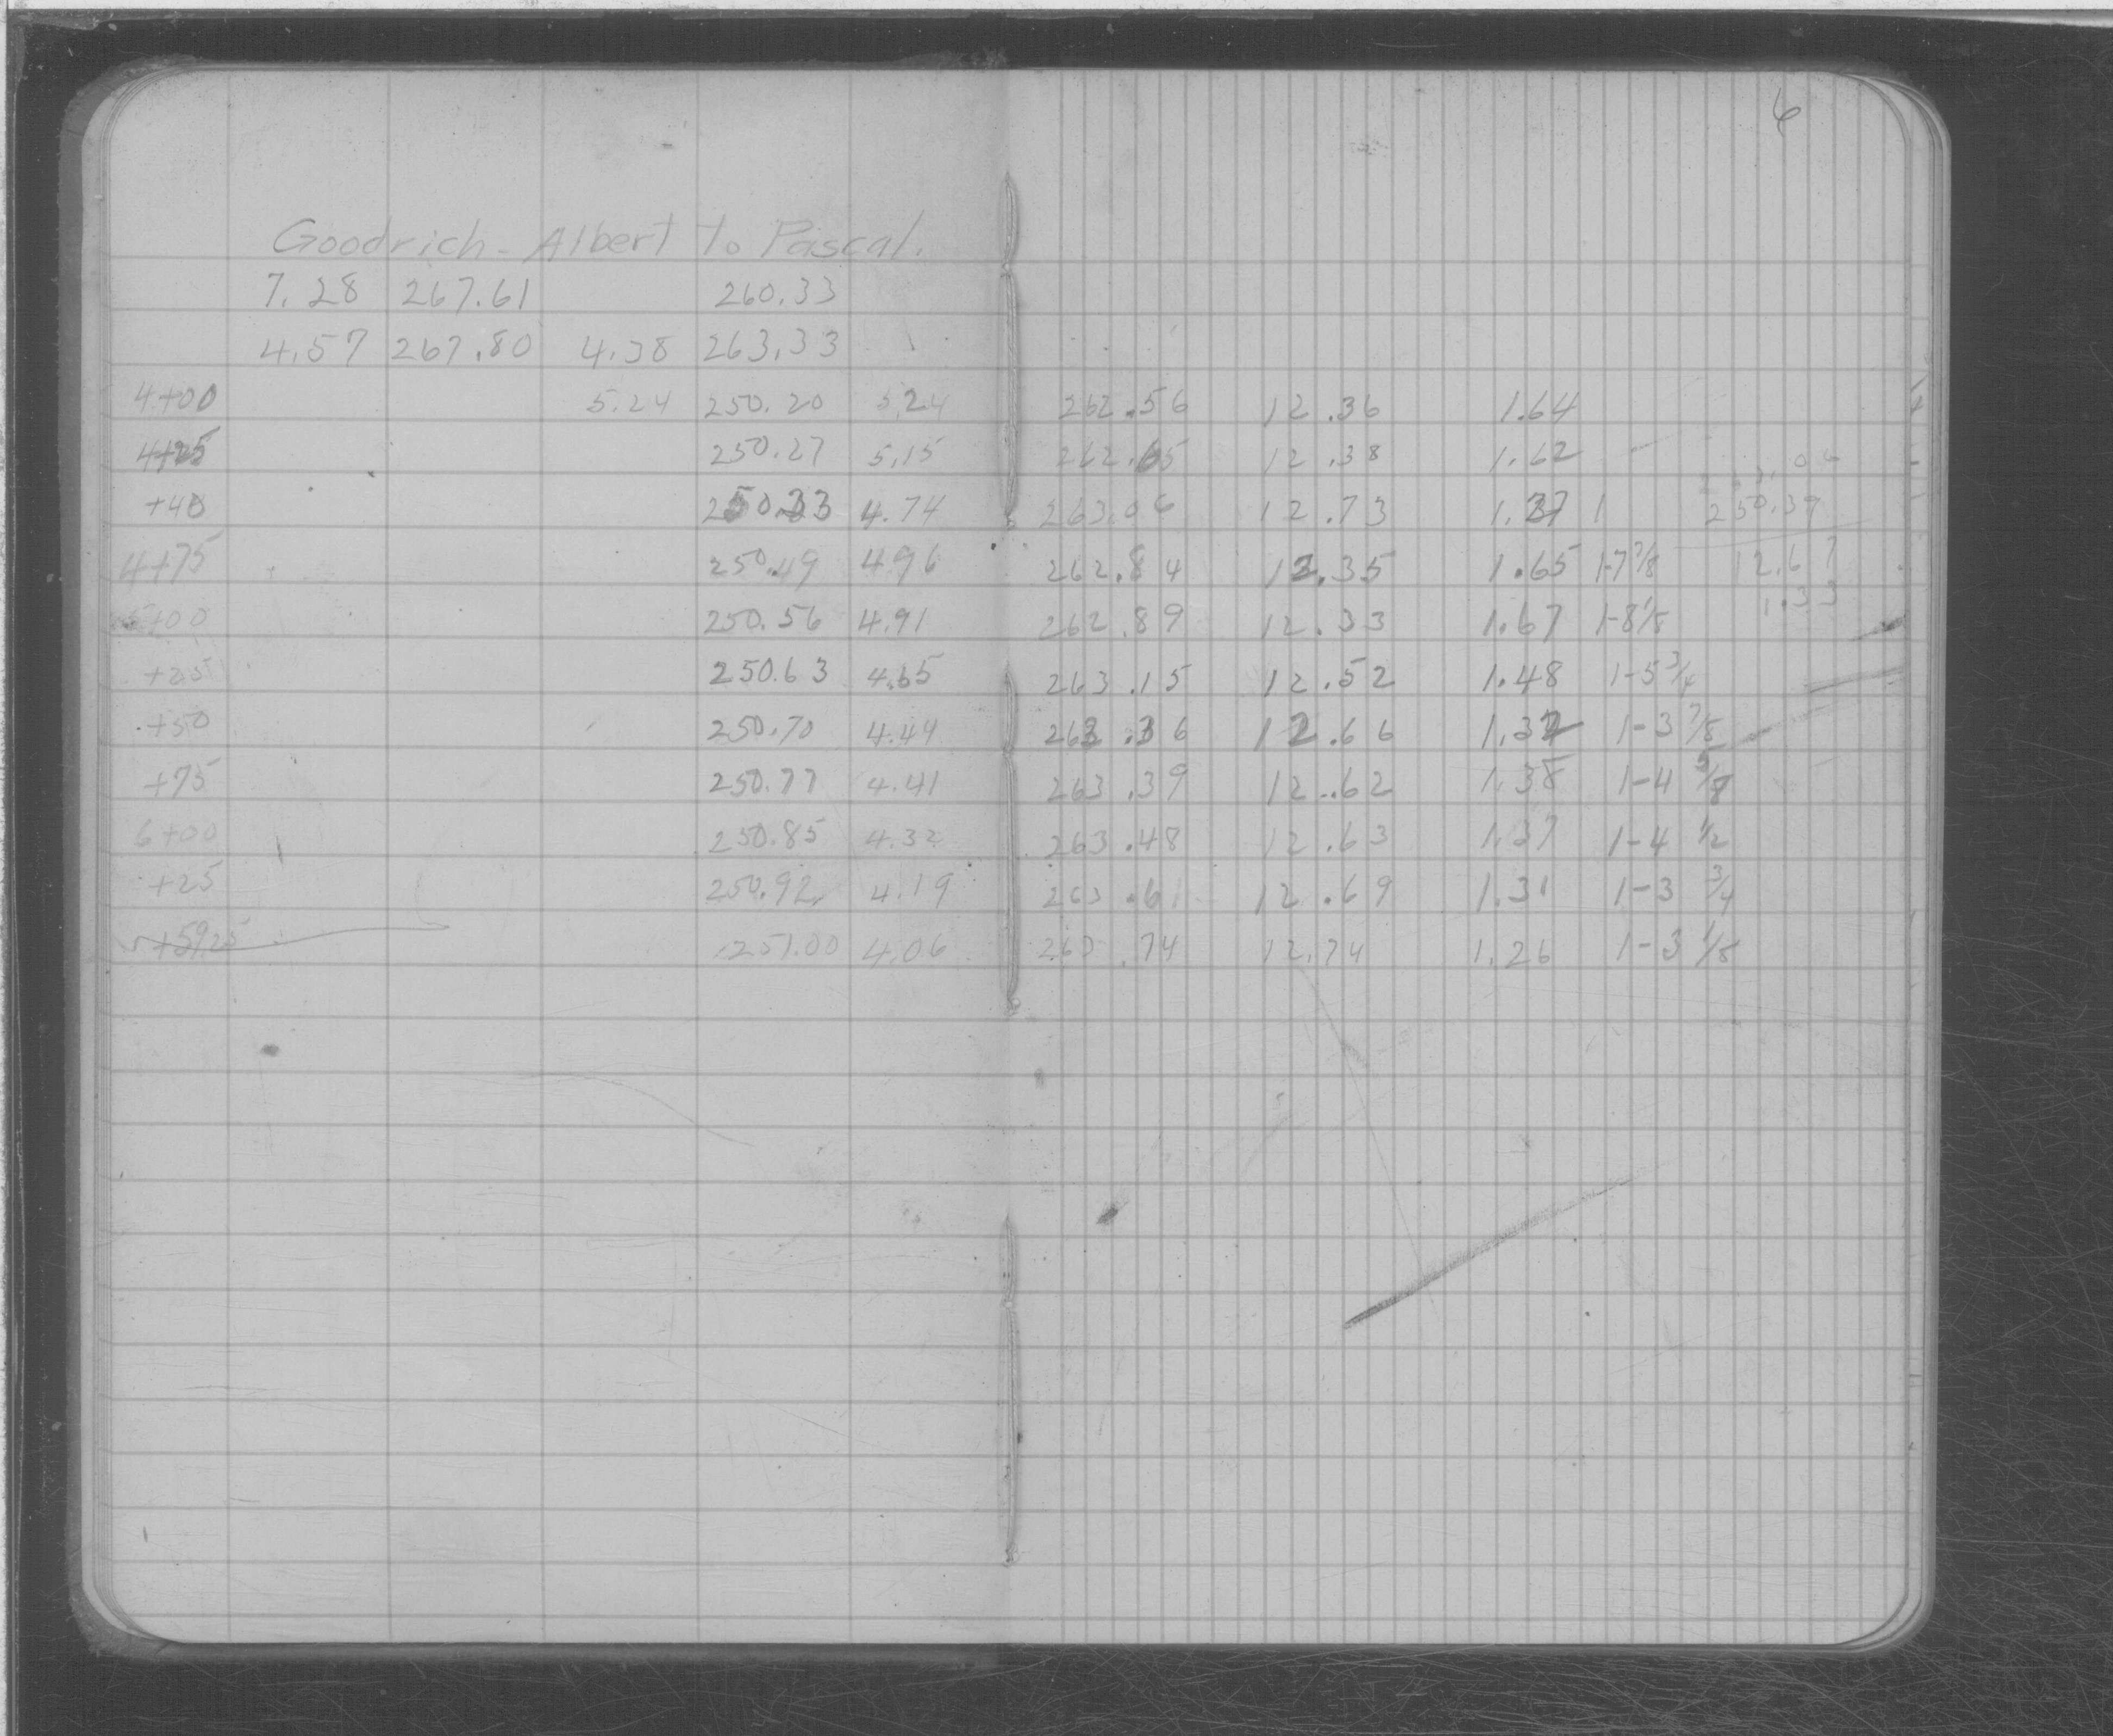 6
Goodrich - Albert to Pascal.
7.28 267.61 260.33
4.57 267.80 4.38 263.33
4+00 5.24 250.20 5.24 262.56 12.36 1.64
4+25 250.27 5.15 262.65 12.38 1.62
+40 250.33 4.74 263.06 12.73 1.27 1 250.39
4+75 250.49 4.96 262.84 12.35 1.65 1-7 7/8 12.67
5+00 250.56 4.91 262.89 12.33 1.67 1-8 1/8 1.33
+25 250.63 4.65 263.15 12.52 1.48 1-5 3/4
+50 250.70 4.44 263.36 12.66 1-3 7/8
+75 250.77 4.41 263.39 12.62 1.38 1-4 5/8
6+00 250.85 4.32 263.48 12.63 1.37 1-4 1/2
+25 250.92 4.19 263.61 12.69 1.31 1-3 3/4
+59.25 251.00 4.06 263.74 12.74 1.26 1-3 1/8